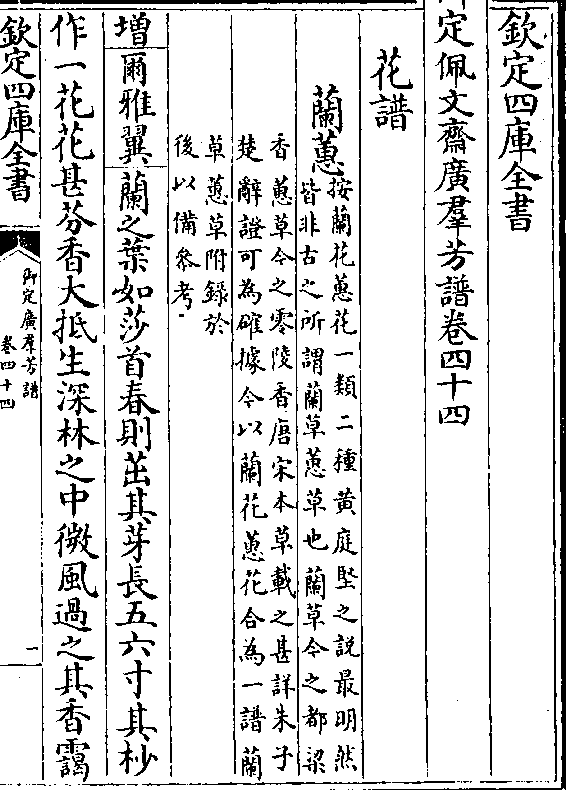 欽定四庫全書
定佩文齋廣羣芳譜卷四十四
花譜
蘭蕙
按蘭花蕙花一類二種黄庭堅之説最明然
皆非古之所謂蘭草蕙草也蘭草今之都梁
香蕙草今之零陵香唐宋本草載之甚詳朱子
楚辭證可為確據今以蘭花蕙花合為一譜蘭
草蕙草附録於
後以備參考
增爾雅翼蘭之葉如莎首春則茁其芽長五六寸其杪
作一花花甚芬香大抵生深林之中微風過之其香靄
欽定四庫全書
御定廣羣芳譜
卷四十四
一